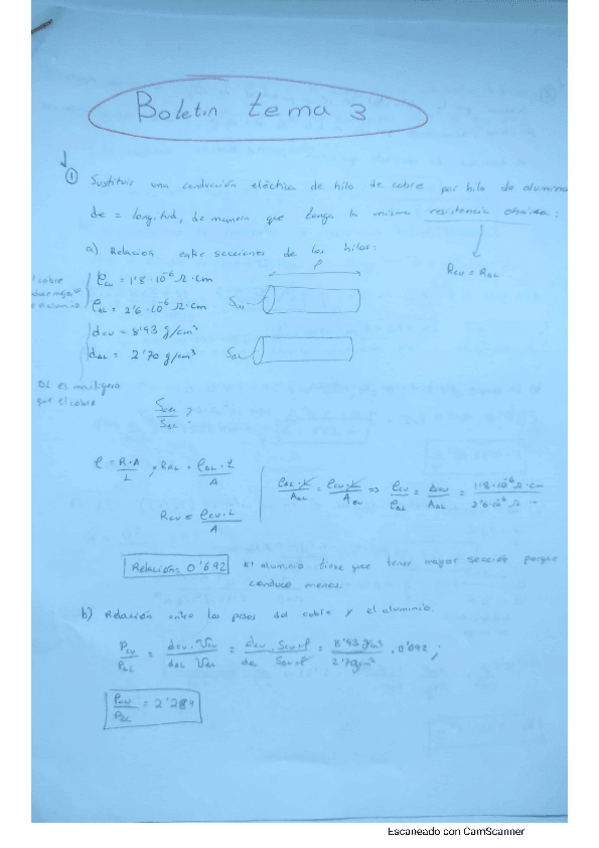 Boletín tema 3
① Sustituir una conducción eléctrica de hilo de cobre por hilo de aluminio
de = longitud, de manera que tenga la misma resistencia óhmica:
a) Relación entre secciones de los hilos:
R_CU = R_AL
ρ_CU = 1'8 · 10⁻⁶ Ω · cm
ρ_AL = 2'6 · 10⁻⁶ Ω · cm
d_CU = 8'93 g/cm³
d_AL = 2'70 g/cm³
cobre
aluminio
S_CU
S_AL
ℓ
AL es más ligero
que el cobre
S_CU / S_AL ?
ρ = R·A / L ; R_AL = ρ_AL · L / A
R_CU = ρ_CU · L / A
ρ_AL · L / A_AL = ρ_CU · L / A_CU => ρ_CU / ρ_AL = A_CU / A_AL = 1'8·10⁻⁶ Ω·cm / 2'6·10⁻⁶ Ω
Relación: 0'692
aluminio tiene que tener mayor sección porque
conduce menos.
b) Relación entre los pesos del cobre y el aluminio.
P_CU / P_AL = d_CU · V_CU / d_AL · V_AL = d_CU · S_CU · ℓ / d_AL · S_AL · ℓ = 8'93 g/cm³ / 2'7 g/cm³ · 0'692 ;
P_CU / P_AL = 2'289
Escaneado con CamScanner